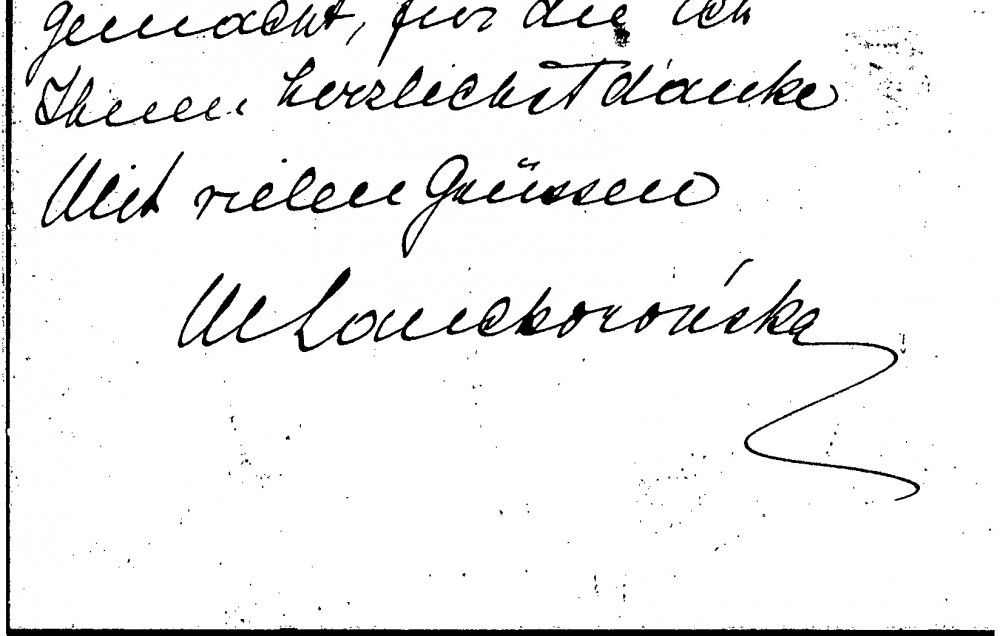 gemacht, für die ich
Ihnen herzlichst danke
Mit vielen Grüssen
M Lanckorońska